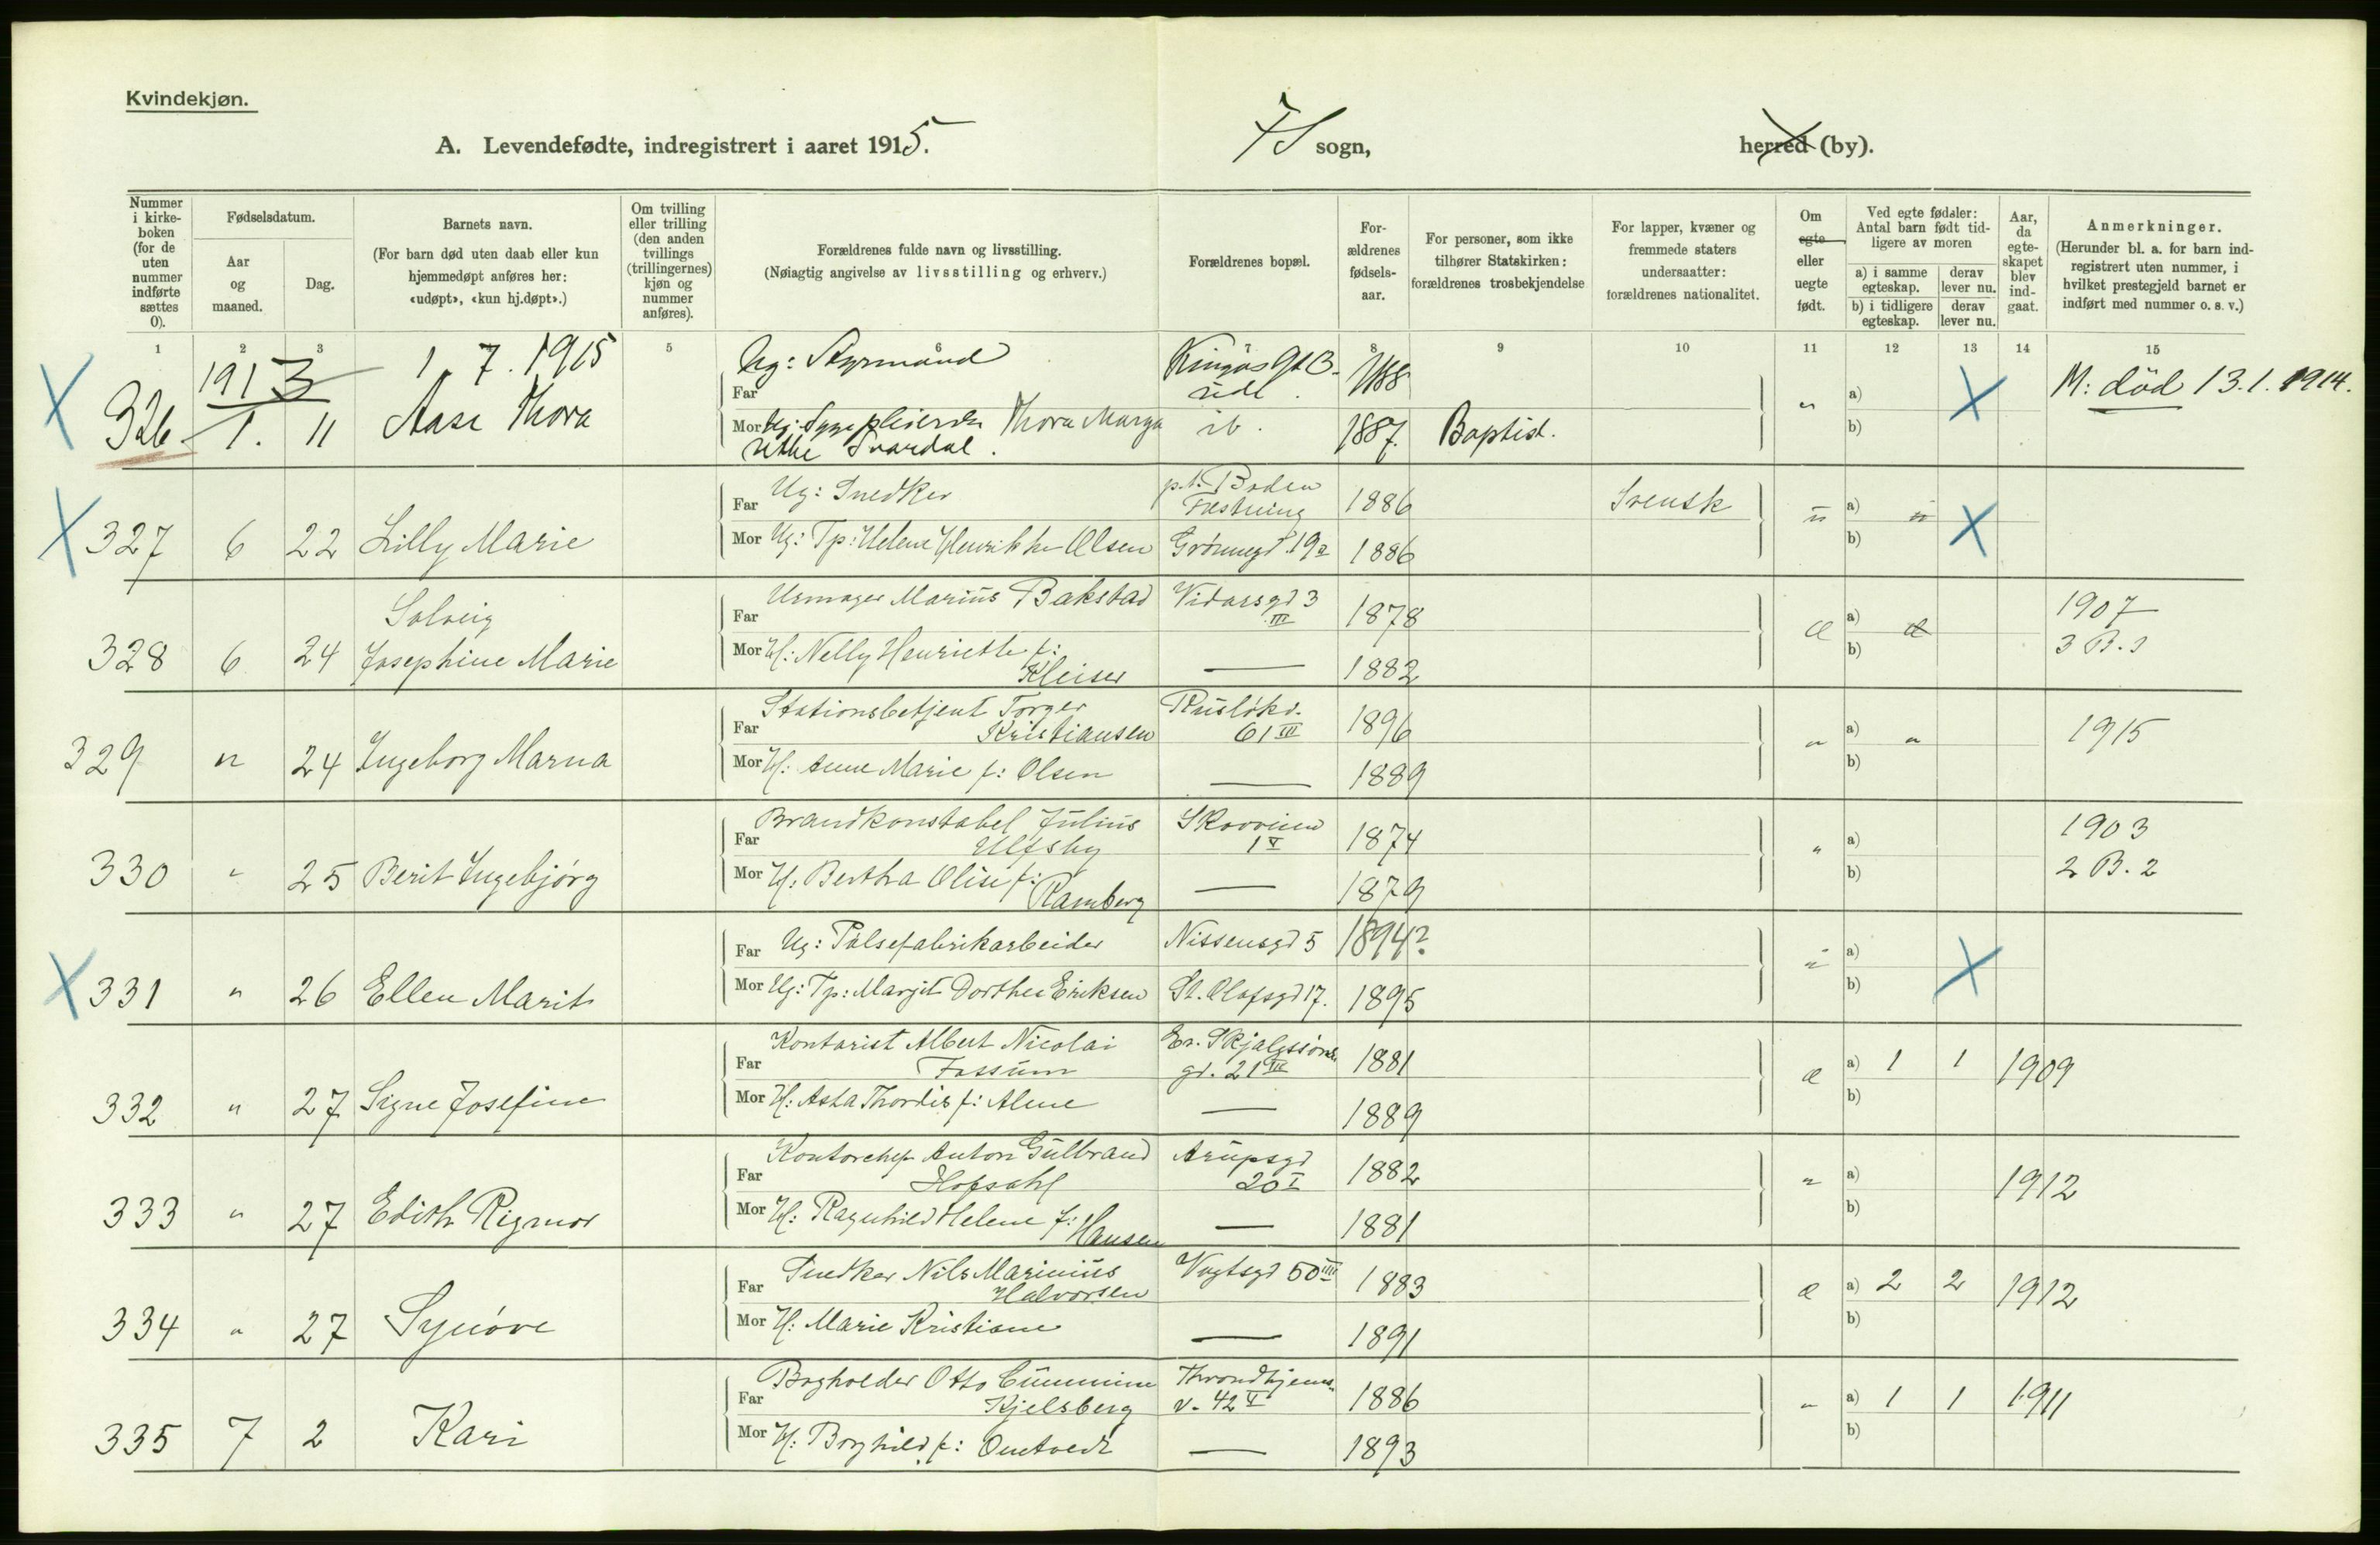 Kvindekjøn.
A. Levendefødte, indregistrert i aaret 1915.
sogn,
herred (by).
Nummer i kirkeboken (for de uten nummer indførte sættes 0).
Fødselsdatum.
Aar og maaned.
Dag.
Barnets navn.
(For barn død uten daab eller kun hjemmedøpt anføres her: «udøpt», «kun hj.døpt».)
Om tvilling eller trilling (den anden tvillings (trillingernes) kjøn og nummer anføres).
Forældrenes fulde navn og livsstilling.
(Nøiagtig angivelse av livsstilling og erhverv.)
Forældrenes bopæl.
Forældrenes fødselsaar.
For personer, som ikke tilhører Statskirken: forældrenes trosbekjendelse
For lapper, kvæner og fremmede staters undersaatter: forældrenes nationalitet.
Om egte eller uegte født.
Ved egte fødsler: Antal barn født tidligere av moren
a) i samme egteskap.
derav lever nu.
b) i tidligere egteskap.
derav lever nu.
Aar, da egteskapet blev indgaat.
Anmerkninger.
(Herunder bl. a. for barn indregistrert uten nummer, i hvilket prestegjeld barnet er indført med nummer o. s. v.)
1 2 3 5 6 7 8 9 10 11 12 13 14 15
1913 1. 7. 1915
X 326 1. 11 Aase Thora
Far Ug: Styrmand 1888 " a) X M: død 13.1.1914.
Mor Ug: Sygepleierske Thora Margarethe Svardal. ib. 1887. Baptist. b)
X 327 6 22 Lilly Marie
Far Ug: Snedker p.t. Boden Fæstning 1886 Svensk " a) " X
Mor Ug: Tp: Helene Henrikke Olsen Grønnegd. 19a 1886 b)
328 6 24 Solveig Josephine Marie
Far Urmager Marius Bakstad Vidarsgd 3 III 1878 Æ a) 1907
Mor H: Nelly Henriette f: Kleiser — 1882 b) 3 B. 3
329 " 24 Ingeborg Marna
Far Stationsbetjent Torger Kristiansen Rusløkv. 61 III 1896 " a) " 1915
Mor H: Anne Marie f: Olsen — 1889 b)
330 " 25 Berit Ingebjørg
Far Brandkonstabel Julius Ulfsby Skovveien 1 V 1874 " a) 1903
Mor H: Bertha Olise f: Ramberg — 1879 b) 2 B. 2
X 331 " 26 Ellen Marit
Far Ug: Pølsefabrikarbeider Nissensgd 5 1894? " a) X
Mor Ug: Tp: Margit Dorthea Eriksen St. Olafsgd 17. 1895 b)
332 " 27 Signe Josefine
Far Kontorist Albert Nicolai Fossum Er. Skjalgssøns gd. 21 III 1881 Æ a) 1 1 1909
Mor H: Asta Thordis f: Alme — 1889 b)
333 " 27 Edith Rigmor
Far Kontorchef Anton Gulbrand Hofsahl Arupsgd 20 I 1882 " a) 1912
Mor H: Ragnhild Helene f: Hansen — 1881 b)
334 " 27 Synøve
Far Snedker Nils Marinius Halvorsen Vogtsgd 50 IIII 1883 Æ a) 2 2 1912
Mor H: Marie Kristiane — 1891 b)
335 7 2 Kari
Far Bogholder Otto Kjelsberg Throndhjems v. 42 V 1886 " a) 1 1 1911
Mor H: Borghild f: Omtvedt — 1893 b)